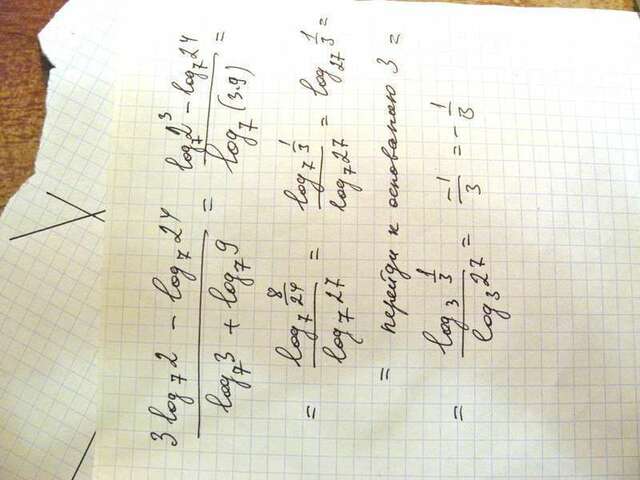 (3 log₇2 − log₇24)/(log₇3 + log₇9) = (log₇2³ − log₇24)/(log₇(3·9)) =
= (log₇ 8/24)/(log₇27) = (log₇ 1/3)/(log₇27) = log₂₇ 1/3 =
= перейди к основанию 3 =
= (log₃ 1/3)/(log₃27) = −1/3 = −1/3